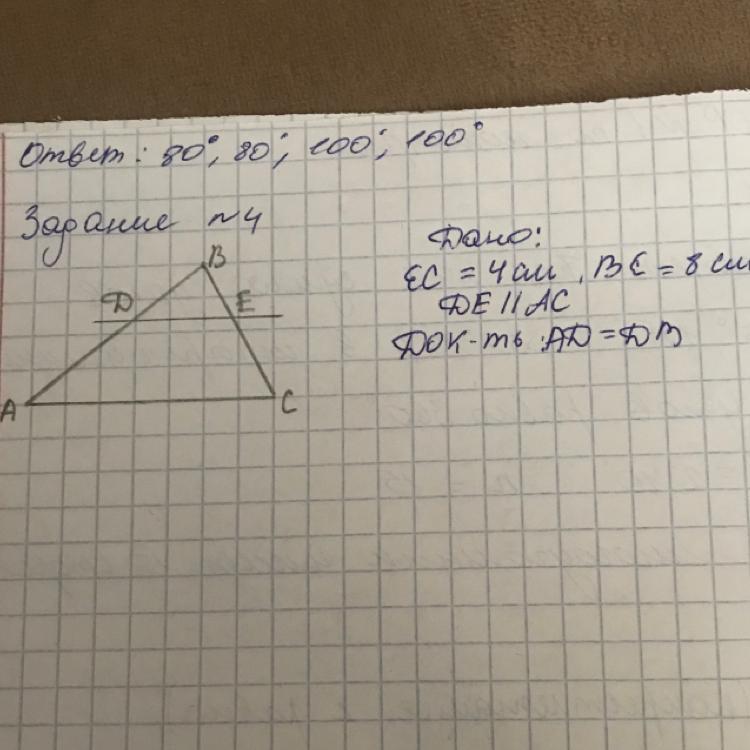 Ответ: 80°, 80°, 100°, 100°
Задание №4
B
D
E
A
C
Дано:
EC = 4 см, BE = 8 см
DE || AC
Док-ть: AD = DB